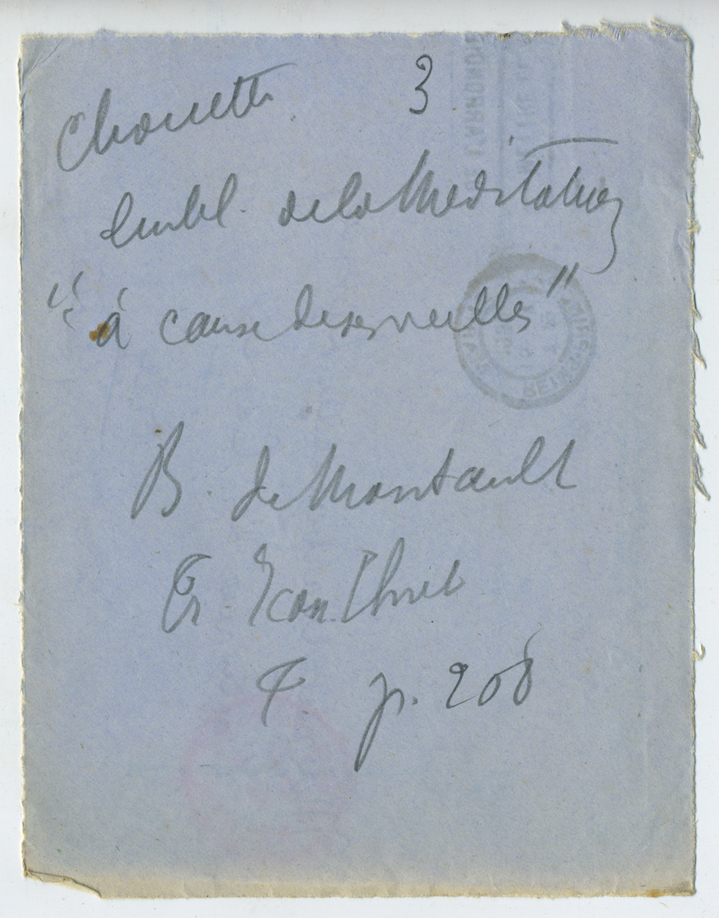 Chouette 3
Embl. de la Méditation
"à cause de ses veilles"
B. de Montault
Tr. Icon. Chret
T p. 208